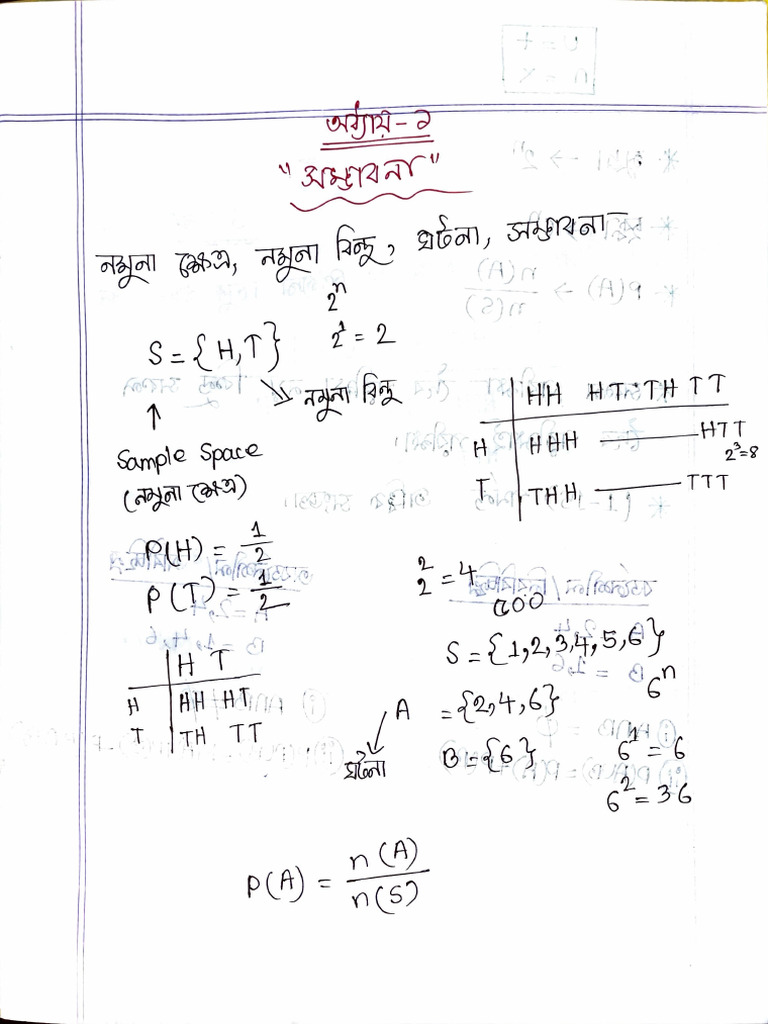 অধ্যায় - ২
"সম্ভাবনা"
নমুনা ক্ষেত্র, নমুনা বিন্দু, ঘটনা, সম্ভাবনা
2ⁿ
S = {H,T} 2¹ = 2
নমুনা বিন্দু
Sample Space
(নমুনা ক্ষেত্র)
HH HT TH TT
H HHH HTT
2³=8
T THH TTT
P(H) = 1/2
P(T) = 1/2
2² = 4
H T
H HH HT
T TH TT
S = {1,2,3,4,5,6}
6ⁿ
A = {2,4,6}
ঘটনা
B = {6}
6¹ = 6
6² = 36
P(A) = n(A)/n(S)